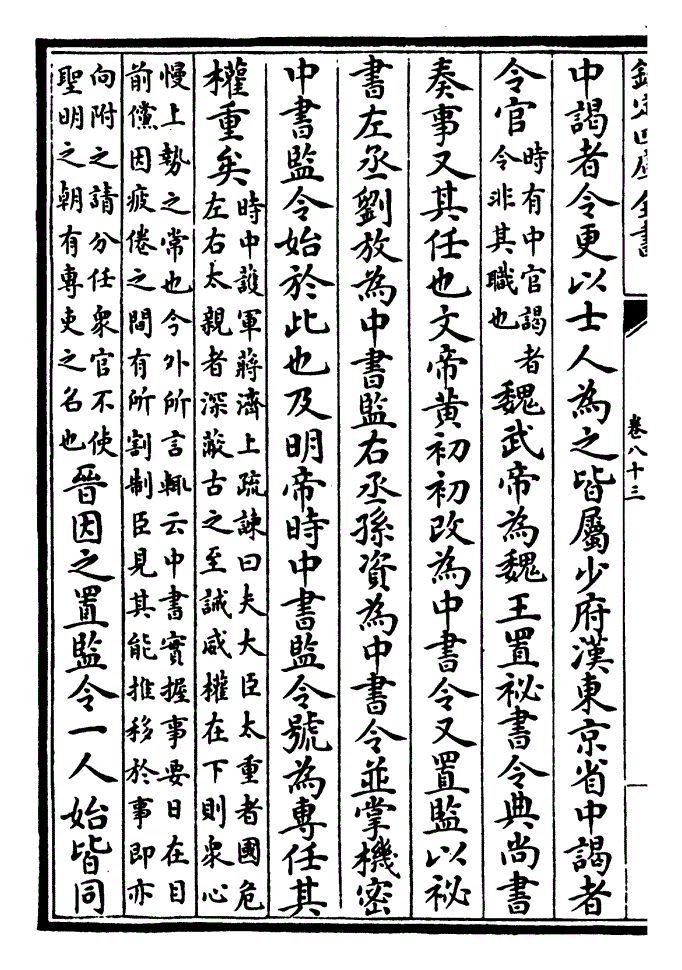 欽定四庫全書
卷八十三
中謁者令更以士人為之皆屬少府漢東京省中謁者
令官
時有中官謁者
令非其職也
魏武帝為魏王置祕書令典尚書
奏事又其任也文帝黄初初改為中書令又置監以祕
書左丞劉放為中書監右丞孫資為中書令並掌機密
中書監令始於此也及明帝時中書監令號為專任其
權重矣
時中護軍蔣濟上疏諫曰夫大臣太重者國危
左右太親者深蔽古之至誡威權在下則衆心
慢上勢之常也今外所言輙云中書實握事要日在目
前儻因疲倦之間有所割制臣見其能推移於事即亦
向附之請分任衆官不使
聖明之朝有專吏之名也
晉因之置監令一人始皆同